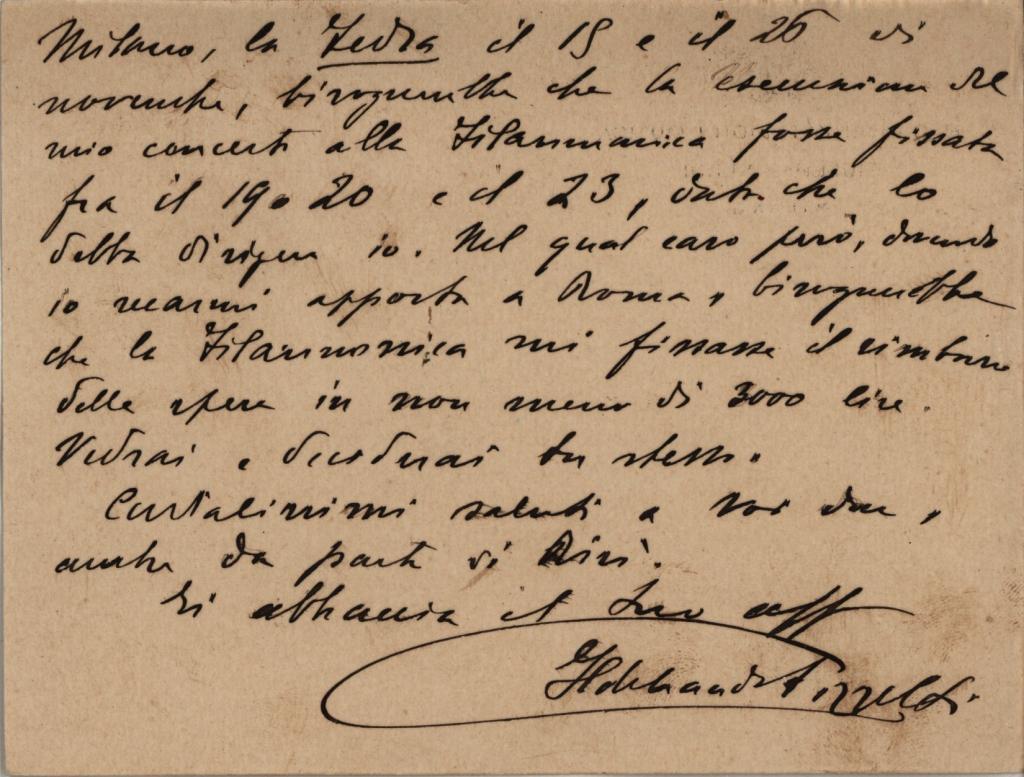 Milano, la Fedra il 15 e il 26 di
novembre, bisognerebbe che la esecuzione del
mio concerto alla Filarmonica fosse fissata
fra il 19 o 20 e il 23, dato che lo
debbo dirigere io. Nel qual caso però, dovendo
io recarmi apposta a Roma, bisognerebbe
che la Filarmonica mi fissasse il rimborso
delle spese in non meno di 3000 lire.
Vedrai e deciderai tu stesso.
Cordialissimi saluti a voi due,
anche da parte di Rirì.
Ti abbraccia il tuo aff
Ildebrando Pizzetti